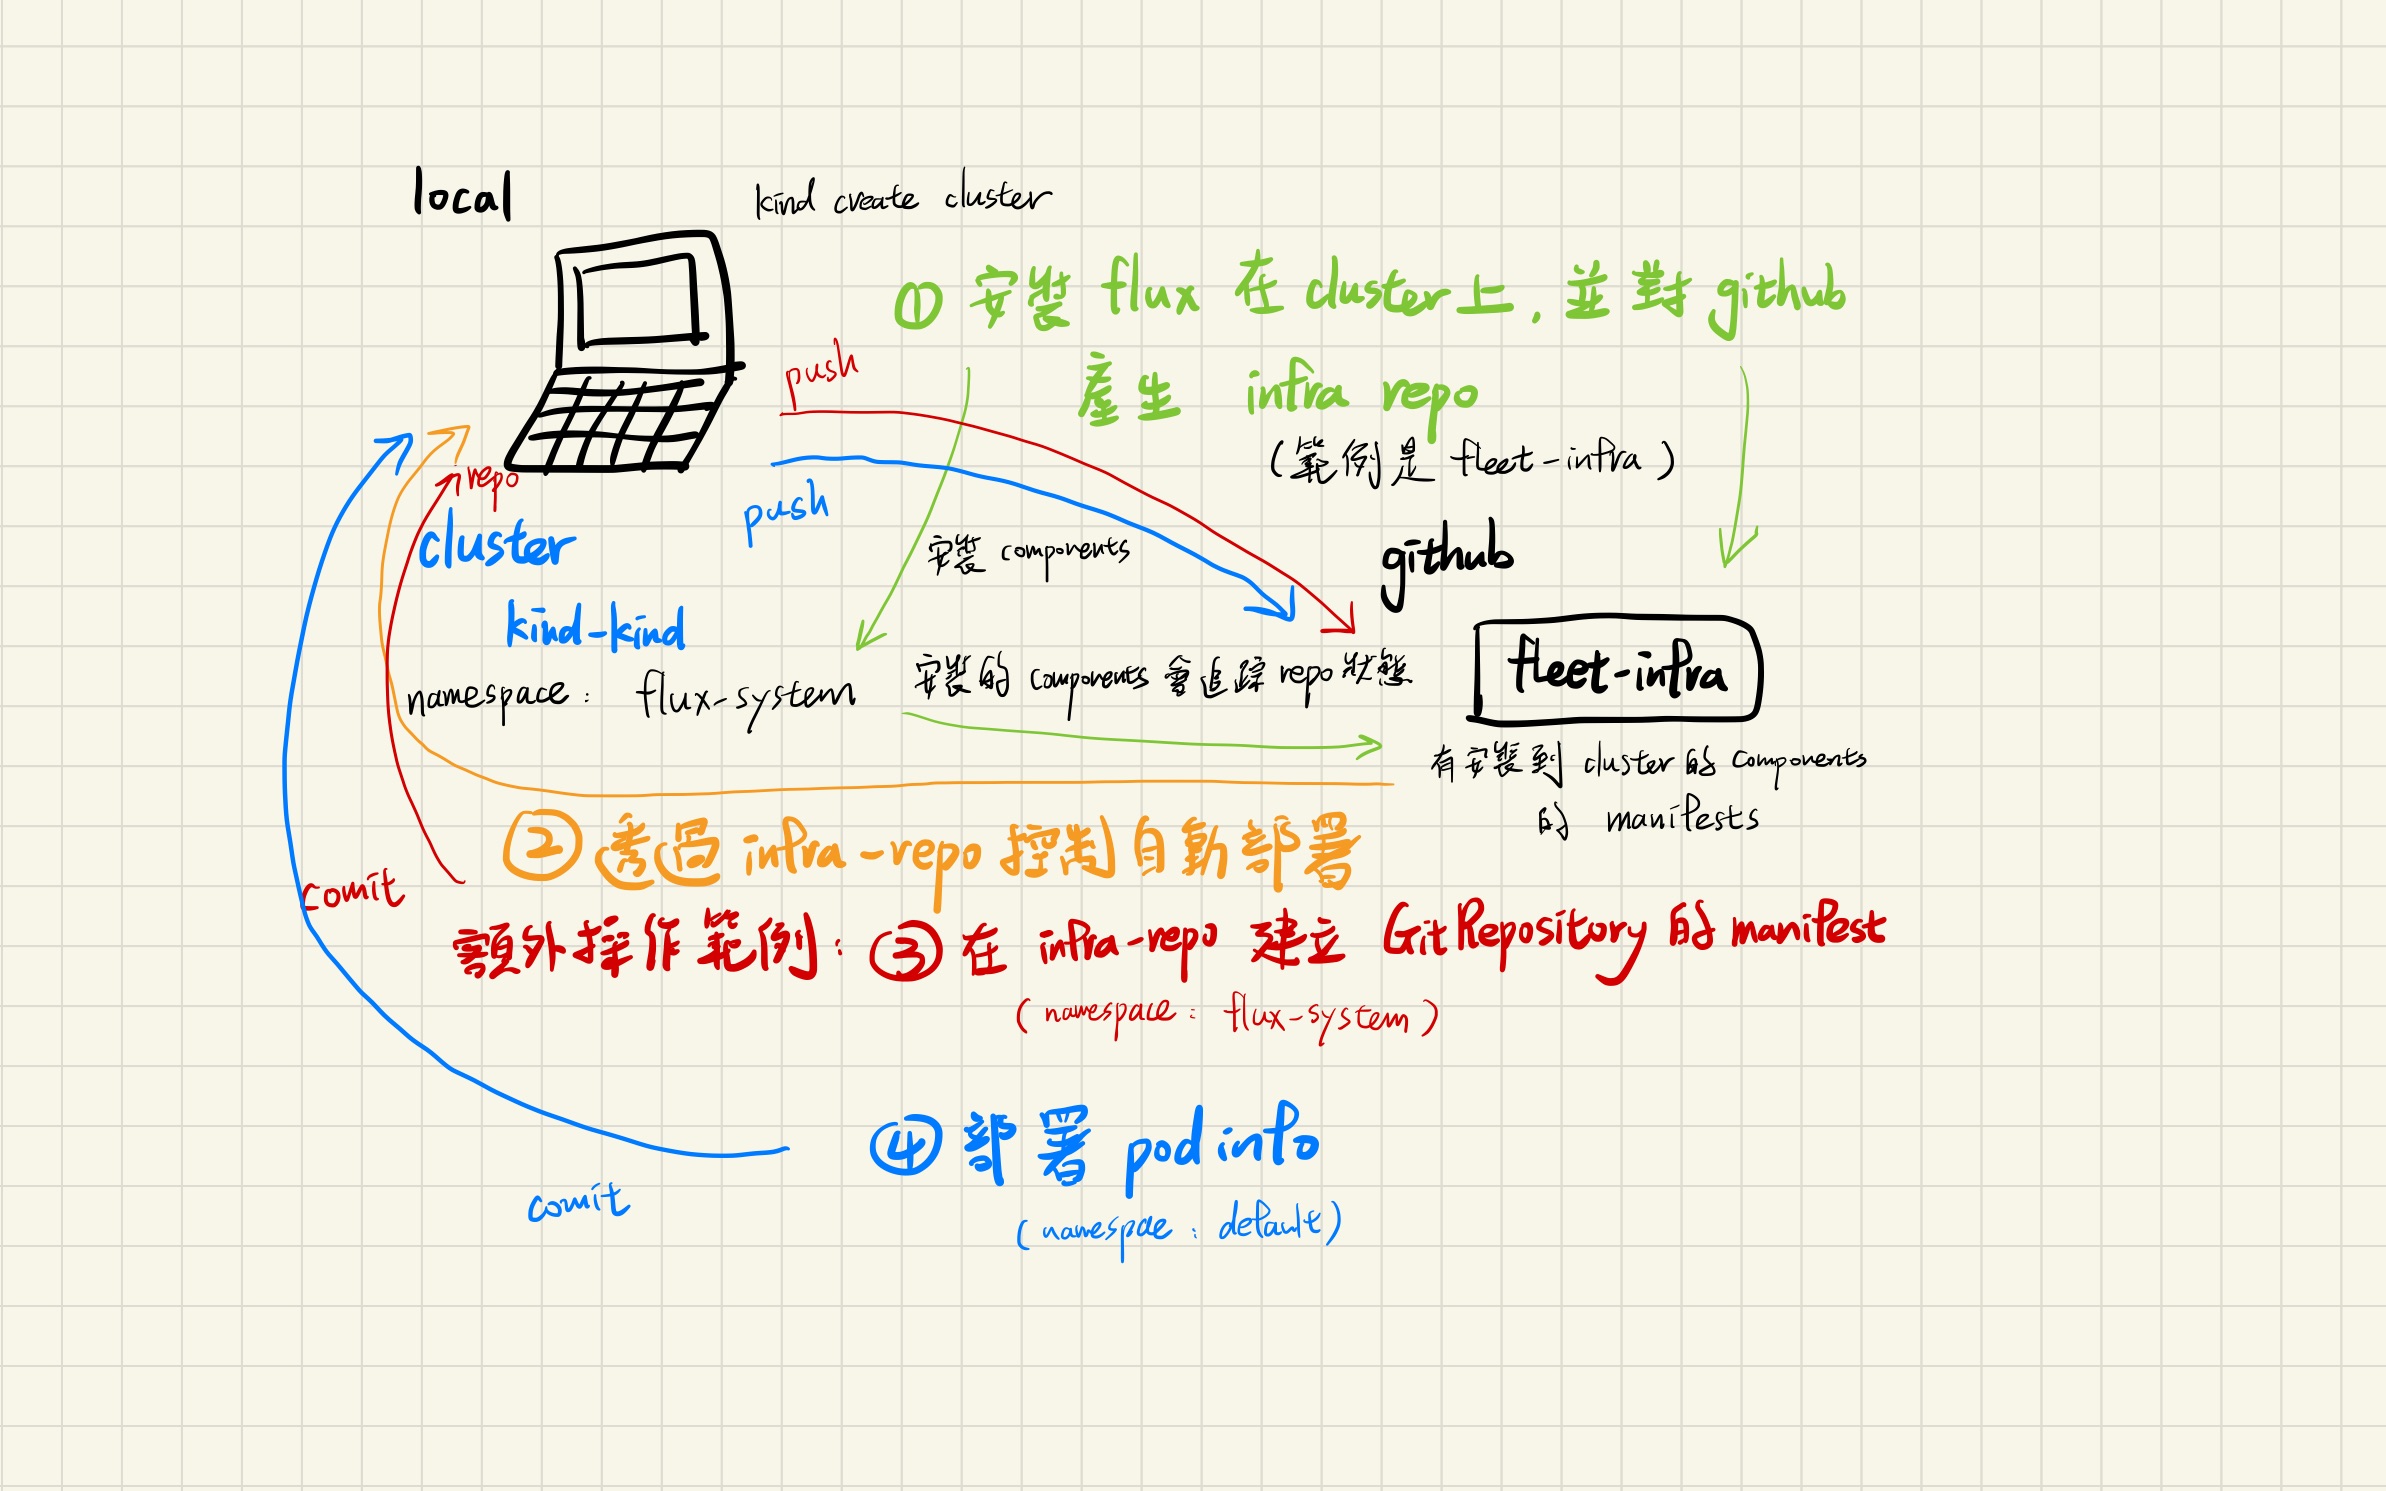 local
kind create cluster
① 安裝 flux 在 cluster上，並對 github
產生 infra repo
(範例是 fleet-infra)
push
push
repo
cluster
kind-kind
namespace: flux-system
安裝 components
安裝的 components 會追踪 repo 狀態
github
fleet-infra
有安裝到 cluster 的 components
的 manifests
② 透過 infra-repo 控制自動部署
comit
額外操作範例: ③ 在 infra-repo 建立 GitRepository 的 manifest
(namespace: flux-system)
④ 部署 podinfo
comit
(namespae: default)